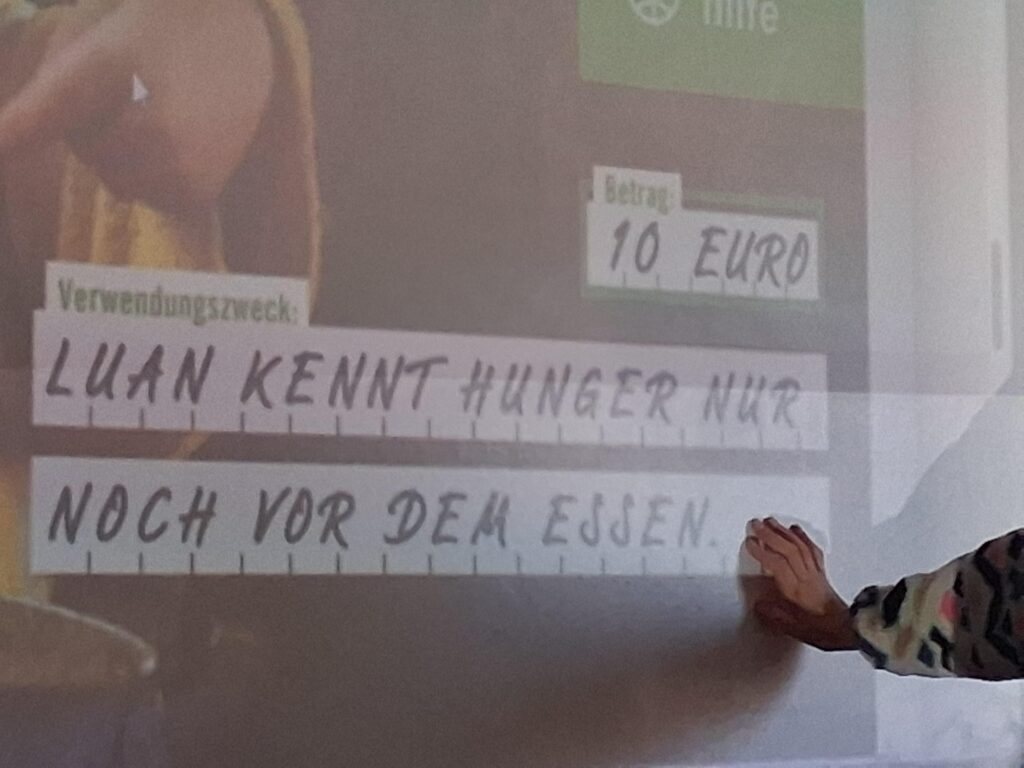 hilfe
Betrag:
10 EURO
Verwendungszweck:
LUAN KENNT HUNGER NUR
NOCH VOR DEM ESSEN.